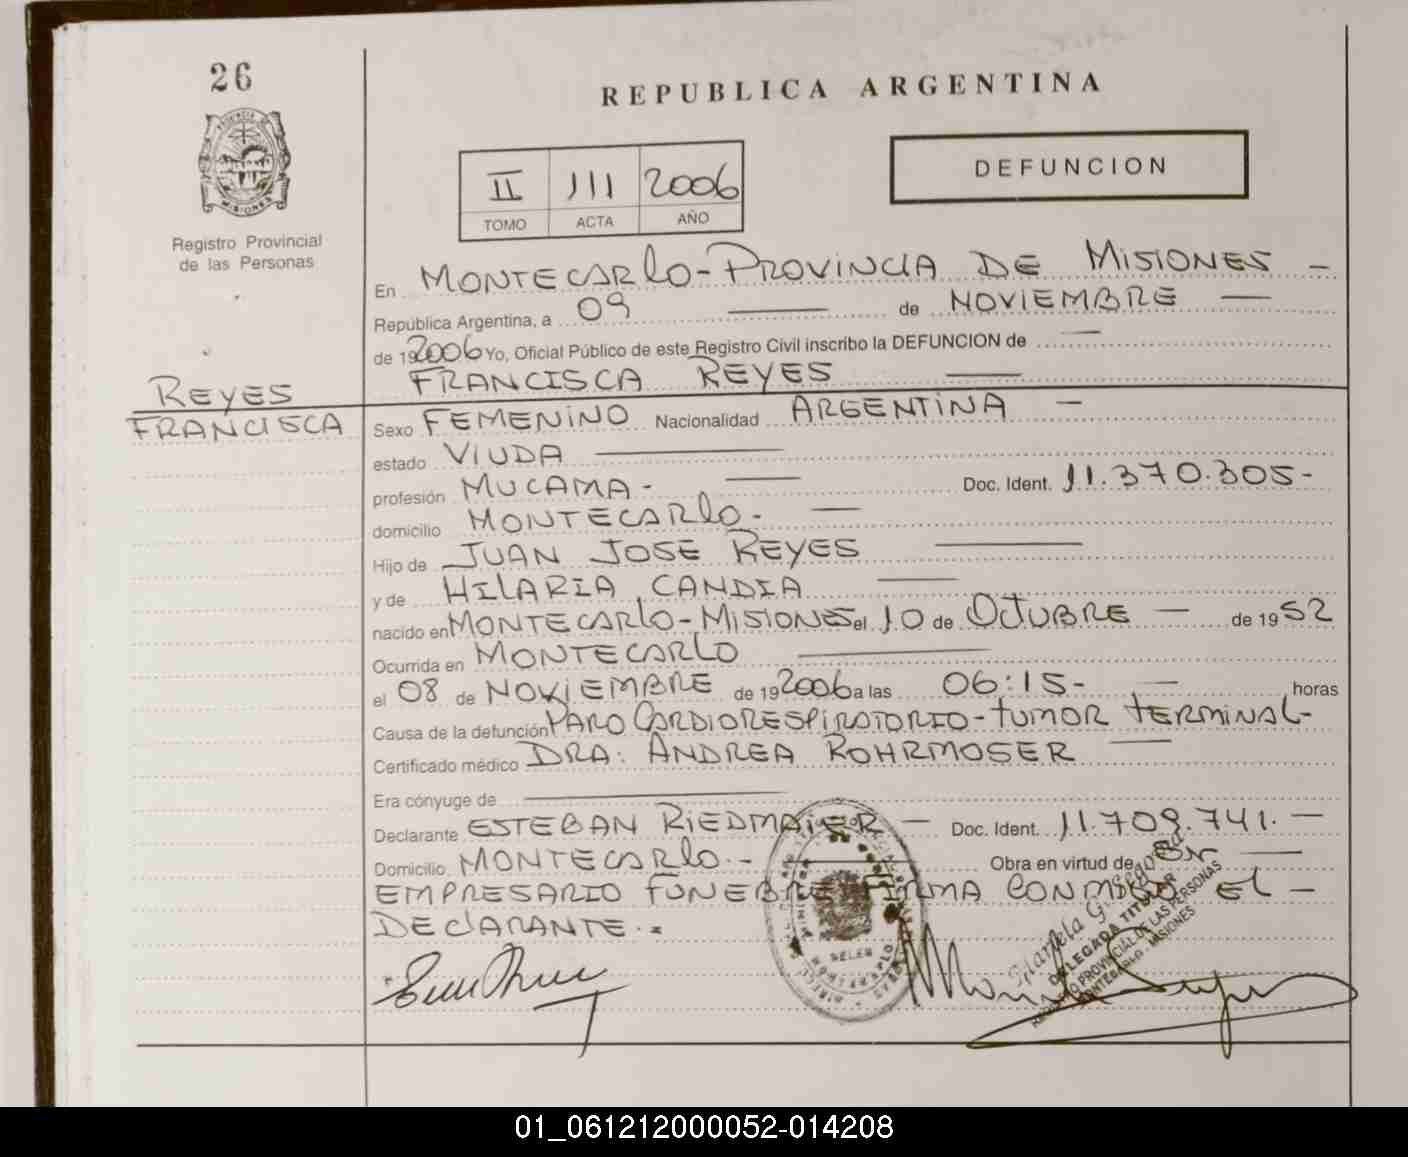 26
REPUBLICA ARGENTINA
MISIONES
Registro Provincial
de las Personas
II III 2006
TOMO ACTA AÑO
DEFUNCION
En MONTECARLO - PROVINCIA DE MISIONES -
República Argentina, a 09 de NOVIEMBRE
de 19 2006 Yo, Oficial Público de este Registro Civil inscribo la DEFUNCION de
FRANCISCA REYES
REYES
FRANCISCA
Sexo FEMENINO Nacionalidad ARGENTINA -
estado VIUDA
profesión MUCAMA - Doc. Ident. 11.370.305-
domicilio MONTECARLO -
Hijo de JUAN JOSE REYES
y de HILARIA CANDIA
nacido en MONTECARLO - MISIONES el 10 de OCTUBRE - de 1952
Ocurrida en MONTECARLO
el 08 de NOVIEMBRE de 19 2006 a las 06:15- horas
Causa de la defunción PARO CARDIORESPIRATORIO - TUMOR TERMINAL -
Certificado médico DRA: ANDREA ROHRMOSER
Era cónyuge de
Declarante ESTEBAN RIEDMAIER - Doc. Ident. 11.709.741. -
Domicilio MONTECARLO - Obra en virtud de Sr
EMPRESARIO FUNEBRE FIRMA CONMIGO EL -
DECLARANTE.=
DELEGADA TITULAR
REGISTRO PROVINCIAL DE LAS PERSONAS
MONTECARLO - MISIONES
01_061212000052-014208